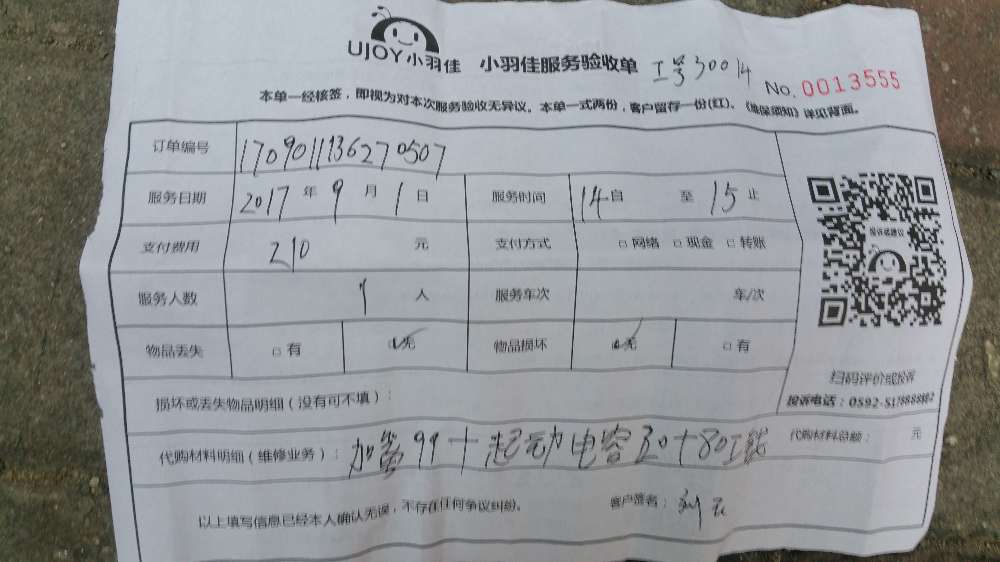 UJOY小羽佳 小羽佳服务验收单 工号30014
No. 0013555
本单一经核签，即视为对本次服务验收无异议。本单一式两份，客户留存一份(红)、《维保须知》详见背面。
订单编号 170901136270507
服务日期 2017 年 9 月 1 日 服务时间 14 自 至 15 止
支付费用 210 元 支付方式 □ 网络 □ 现金 □ 转账
服务人数 1 人 服务车次 车/次
物品丢失 □ 有 □ 无 物品损坏 □ 无 □ 有
投诉或建议
扫码评价或投诉
投诉电话：0592-5178888
损坏或丢失物品明细（没有可不填）：
代购材料明细（维修业务）： 加 99十起动电容30十80工钱
代购材料总额： 元
以上填写信息已经本人确认无误，不存在任何争议纠纷。 客户签名：